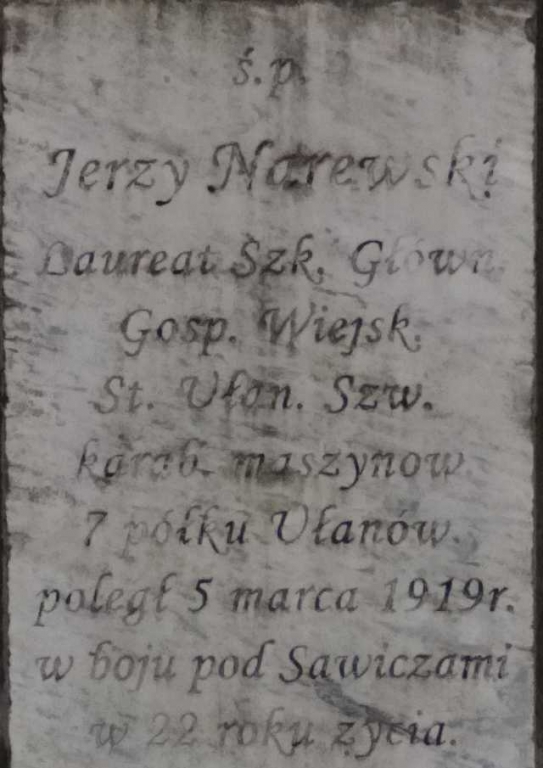 ś.p.
Jerzy Narewski
Laureat Szk. Główn.
Gosp. Wiejsk.
St. Ułan. Szw.
karab. maszynow.
7 półku Ułanów.
poległ 5 marca 1919r.
w boju pod Sawiczami
w 22 roku życia.